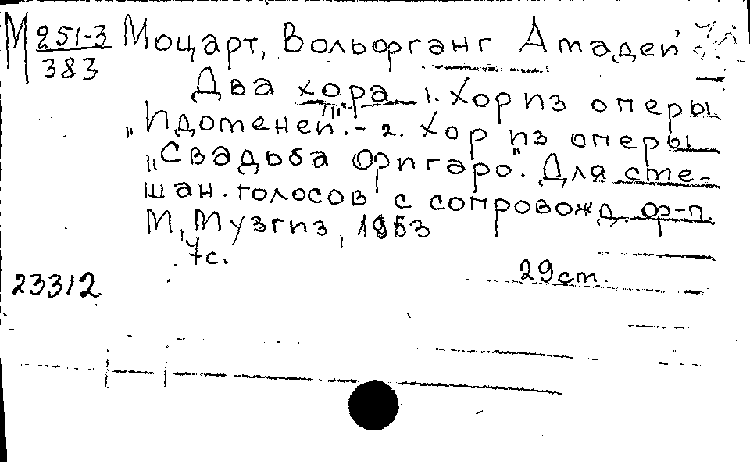 М 251-3 Моцарт, Вольфганг Амадей
383
Два хора. 1. Хор из оперы
"Идоменей". - 2. Хор из оперы
"Свадьба Фигаро". Для сме-
шан. голосов с сопровожд. ф-п.
М., Музгиз, 1953
7с.
29см.
23312